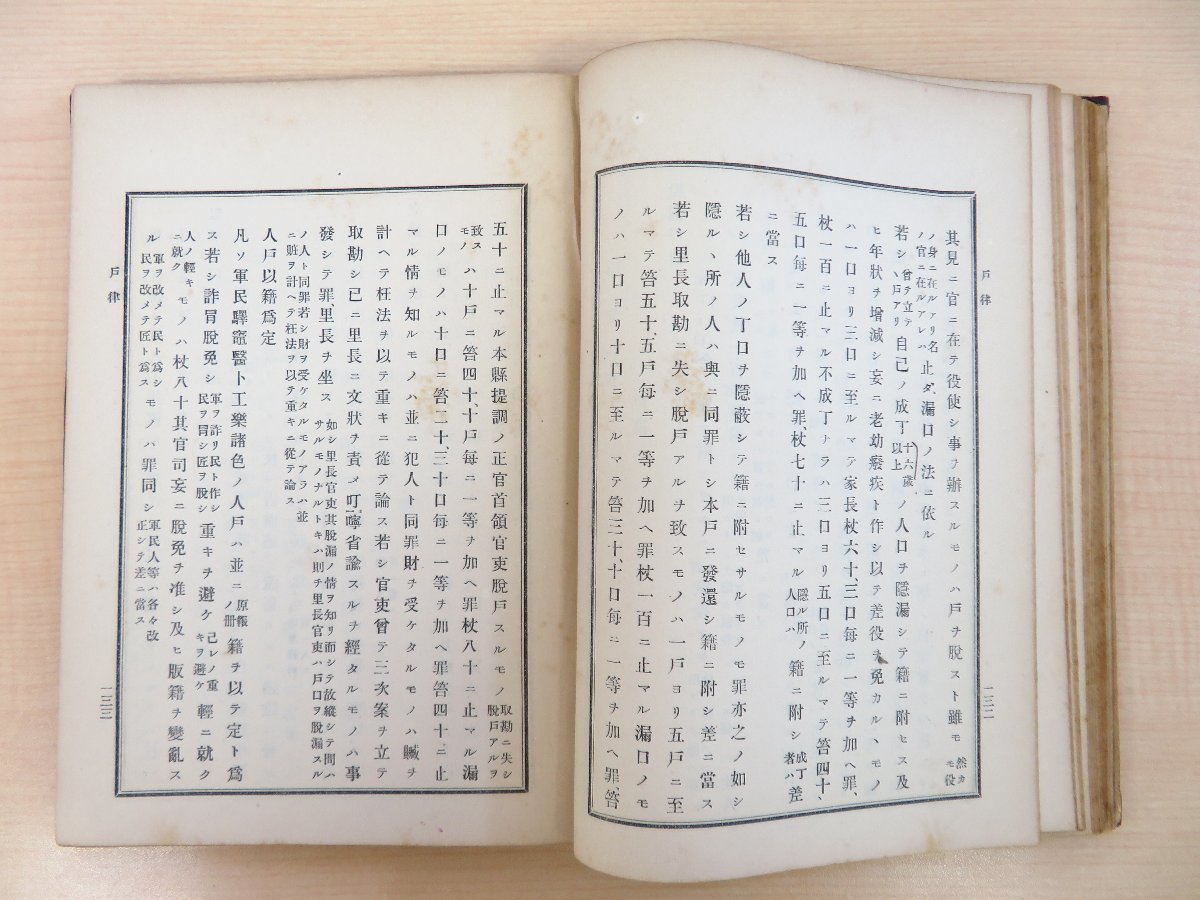 戶律
一三二
其見ニ官ニ在テ役使シ事ヲ辦スルモノハ戶ヲ脫スト雖モ然カモ役
ノ身ニ在ルアリ名ノ官ニ在ルアレハ止タ漏口ノ法ニ依ル
若シ曾テ立テヽ戶アリ自己ノ成丁十六歲以上ノ人口ヲ隱漏シテ籍ニ附セス及
ヒ年狀ヲ增減シ妄ニ老幼癈疾ト作シ以テ差役ヲ免カルヽモノ
ハ一口ヨリ三口ニ至ルマテ家長杖六十、三口每ニ一等ヲ加ヘ罪、
杖一百ニ止マル不成丁ナラハ三口ヨリ五口ニ至ルマテ笞四十、
五口每ニ一等ヲ加ヘ罪、杖七十ニ止マル隱ル所ノ人口ハ籍ニ附シ成丁者ハ差
ニ當ス
若シ他人ノ丁口ヲ隱蔽シテ籍ニ附セサルモノモ罪亦之ノ如シ
隱ルヽ所ノ人ハ與ニ同罪トシ本戶ニ發還シ籍ニ附シ差ニ當ス
若シ里長取勘ニ失シ脫戶アルヲ致スモノハ一戶ヨリ五戶ニ至
ルマテ笞五十、五戶每ニ一等ヲ加ヘ罪杖一百ニ止マル漏口ノモ
ノハ一口ヨリ十口ニ至ルマテ笞三十、十口每ニ一等ヲ加ヘ罪、笞
戶律
一三三
五十ニ止マル本縣提調ノ正官首領官吏脫戶スルモノ取勘ニ失シ脫戶アルヲ
致スモノハ十戶ニ笞四十、十戶每ニ一等ヲ加ヘ罪杖八十ニ止マル漏
口ノモノハ十口ニ笞二十、三十口每ニ一等ヲ加ヘ罪笞四十ニ止
マル情ヲ知ルモノハ並ニ犯人ト同罪財ヲ受ケタルモノハ贓ヲ
計ヘテ枉法ヲ以テ重キニ從テ論ス若シ官吏曾テ三次案ヲ立テ
取勘シ已ニ里長ニ文狀ヲ責メ叮嚀省諭スルヲ經タルモノハ事
發シテ罪、里長ヲ坐ス如シ里長官吏其脫漏ノ情ヲ知リ而シテ故縱シテ問ハサルモノナルトキハ則チ里長官吏ハ戶口ヲ脫漏スル
ノ人ト同罪若シ財ヲ受ケタルモノアラハ並ニ贓ヲ計ヘテ枉法ヲ以テ重キニ從テ論ス
人戶以籍爲定
凡ソ軍民驛竈醫卜工樂諸色ノ人戶ハ並ニ原報ノ册籍ヲ以テ定ト爲
ス若シ詐冒脫免シ軍ヲ詐リ民ト作シ民ヲ冒シ匠ヲ脫シ重キヲ避ケ己レノ重キヲ避ケ輕ニ就ク
人ノ輕キニ就クモノハ杖八十其官司妄ニ脫免ヲ准シ及ヒ版籍ヲ變亂ス
ル軍ヲ改メテ民ト爲シ民ヲ改メテ匠ト爲スモノハ罪同シ軍民人等ハ各々改正シテ差ニ當ス